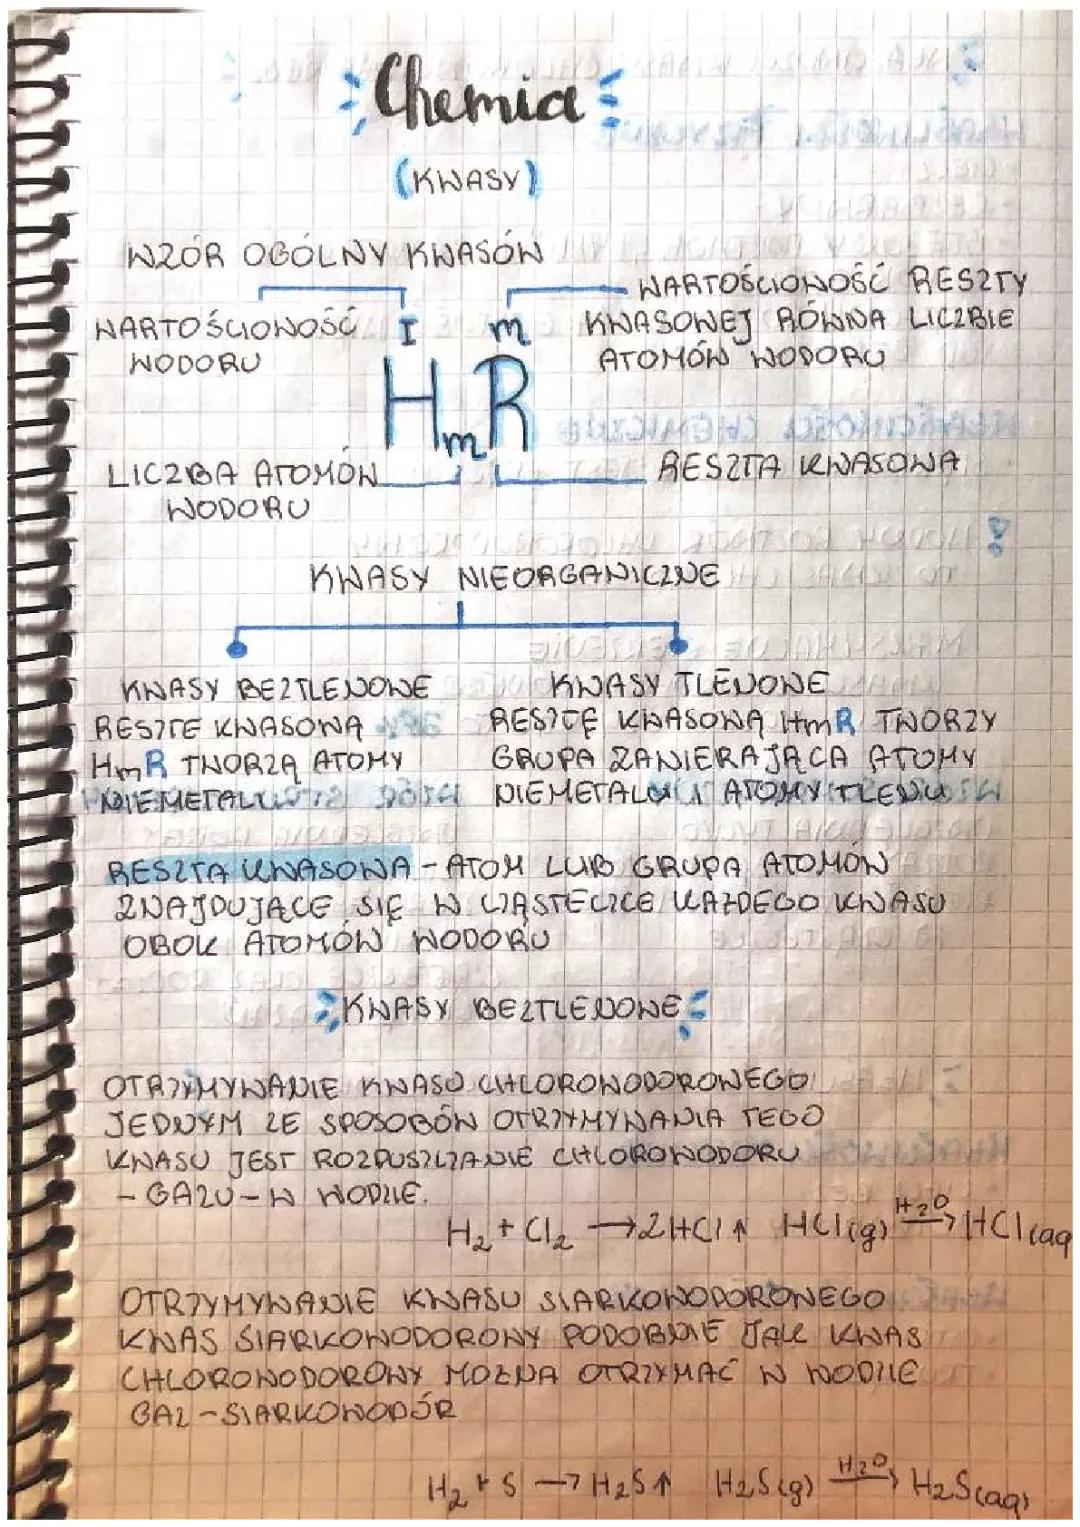 Chemia
(KWASY)
WZÓR OGÓLNY KWASÓW
WARTOŚCIOWOŚĆ
WODORU
I m
WARTOŚCIOWOŚĆ RESZTY
KWASOWEJ RÓWNA LICZBIE
ATOMÓW WODORU
HmR
LICZBA ATOMÓW
WODORU
RESZTA KWASOWA
KWASY NIEORGANICZNE
KWASY BEZTLENOWE
RESZTĘ KWASOWĄ
HmR TWORZĄ ATOMY
NIEMETALU
KWASY TLENOWE
RESZTĘ KWASOWĄ HmR TWORZY
GRUPA ZAWIERAJĄCA ATOMY
NIEMETALU I ATOMY TLENU
RESZTA KWASOWA - ATOM LUB GRUPA ATOMÓW
ZNAJDUJĄCE SIĘ W CZĄSTECZCE KAŻDEGO KWASU
OBOK ATOMÓW WODORU
KWASY BEZTLENOWE
OTRZYMYWANIE KWASU CHLOROWODOROWEGO
JEDNYM ZE SPOSOBÓW OTRZYMYWANIA TEGO
KWASU JEST ROZPUSZCZANIE CHLOROWODORU
- GAZU - W WODZIE.
H₂ + Cl₂ → 2HCl↑ HCl(g) H₂O→ HCl(aq
OTRZYMYWANIE KWASU SIARKOWODOROWEGO
KWAS SIARKOWODOROWY PODOBNIE JAK KWAS
CHLOROWODOROWY MOŻNA OTRZYMAĆ W WODZIE
GAZ - SIARKOWODÓR
H₂ + S → H₂S↑ H₂S(g) H₂O→ H₂S(aq)